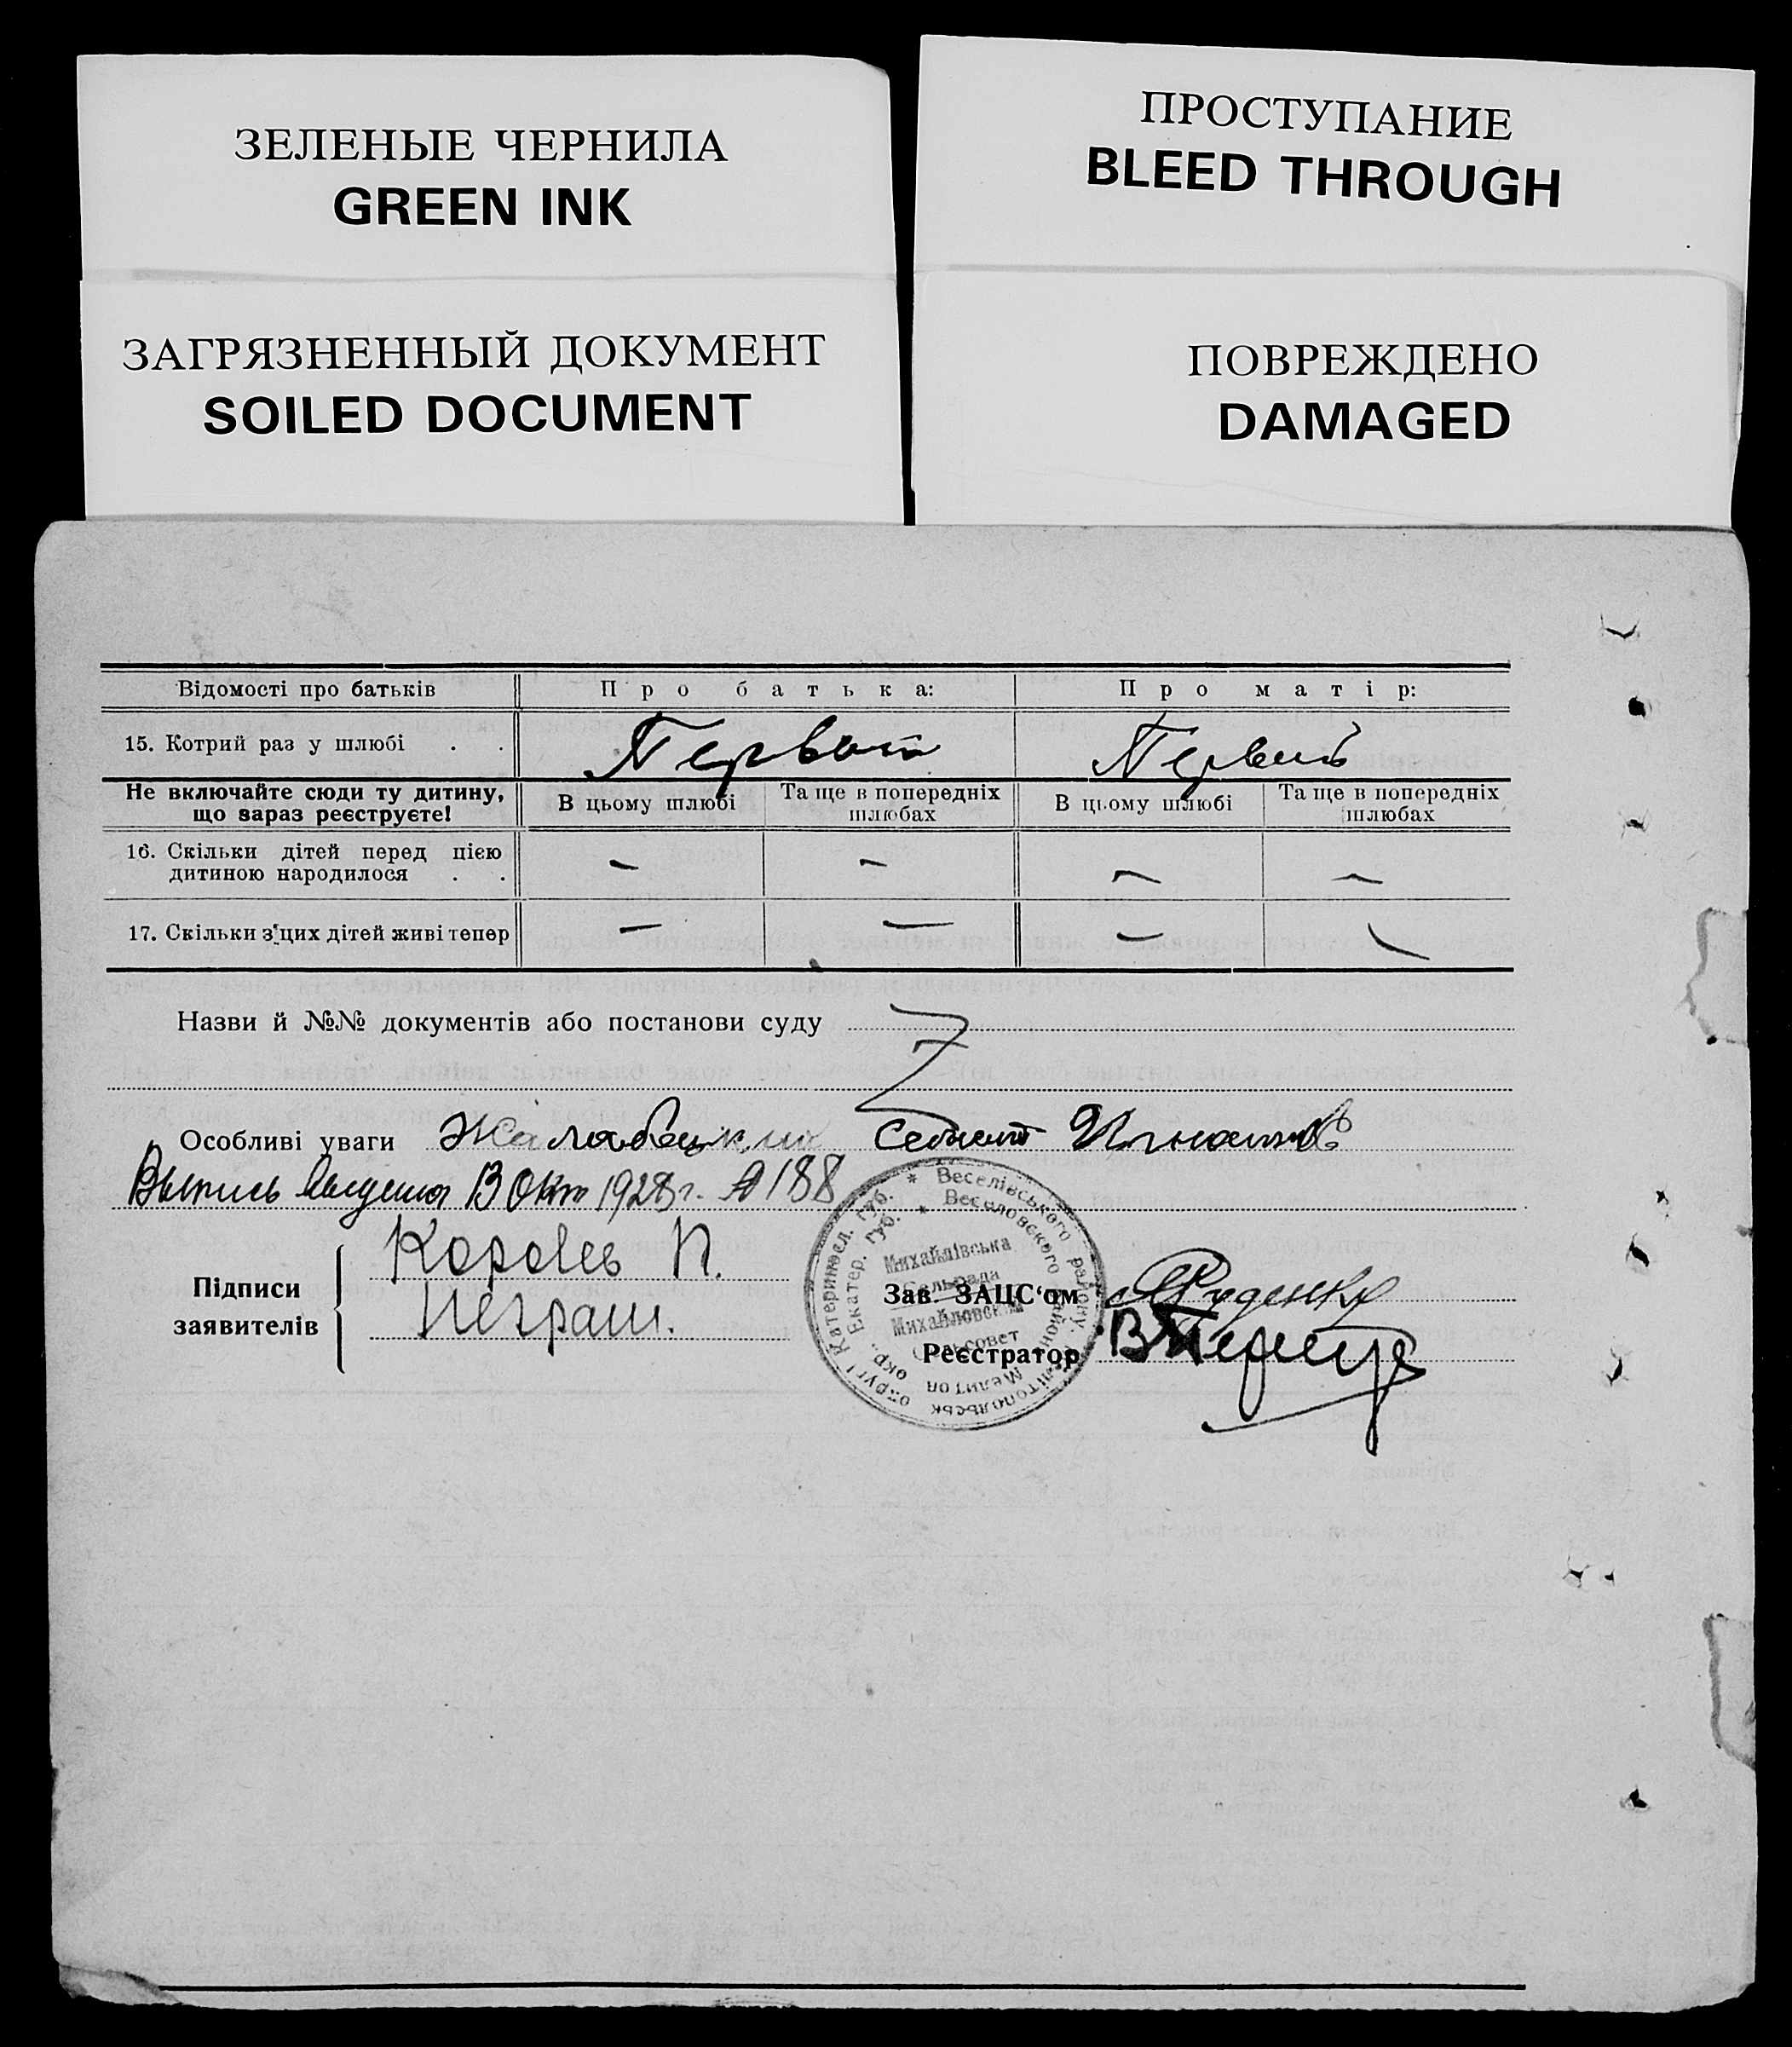 ЗЕЛЕНЫЕ ЧЕРНИЛА
GREEN INK
ПРОСТУПАНИЕ
BLEED THROUGH
ЗАГРЯЗНЕННЫЙ ДОКУМЕНТ
SOILED DOCUMENT
ПОВРЕЖДЕНО
DAMAGED
Відомості про батьків Про батька: Про матір:
15. Котрий раз у шлюбі . . Первый Первый
Не включайте сюди ту дитину,
що зараз реєструєте!
В цьому шлюбі
Та ще в попередніх
шлюбах
В цьому шлюбі
Та ще в попередніх
шлюбах
16. Скільки дітей перед цією
дитиною народилося . . – – – –
17. Скільки з цих дітей живі тепер – – – –
Назви й №№ документів або постанови суду
Особливі уваги
Выпись 1928 г. 188
Підписи
заявителів
Королев П.
Петраш.
Зав. ЗАЦС‘ом Руденко
Реєстратор
Веселівського району
Веселовского района
Катеринosл. губ.
Екатер. губ.
Михайлівська
Сельрада
Михайловский
Сельсовет